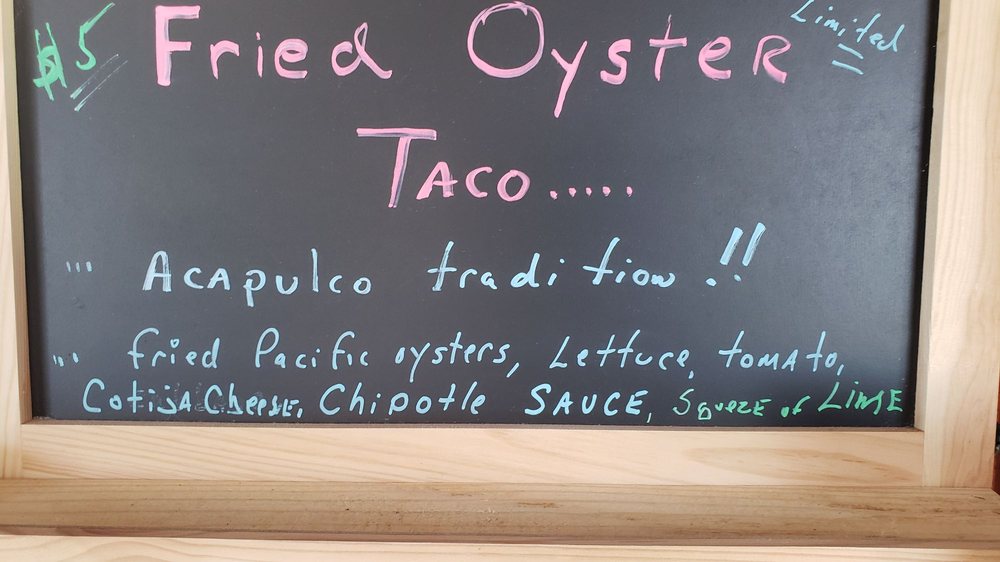 $5 Fried Oyster Limited
Taco.....
''' Acapulco tradition!!
''' fried Pacific oysters, Lettuce, tomato,
Cotija Cheese, Chipotle SAUCE, Sqveze of Lime